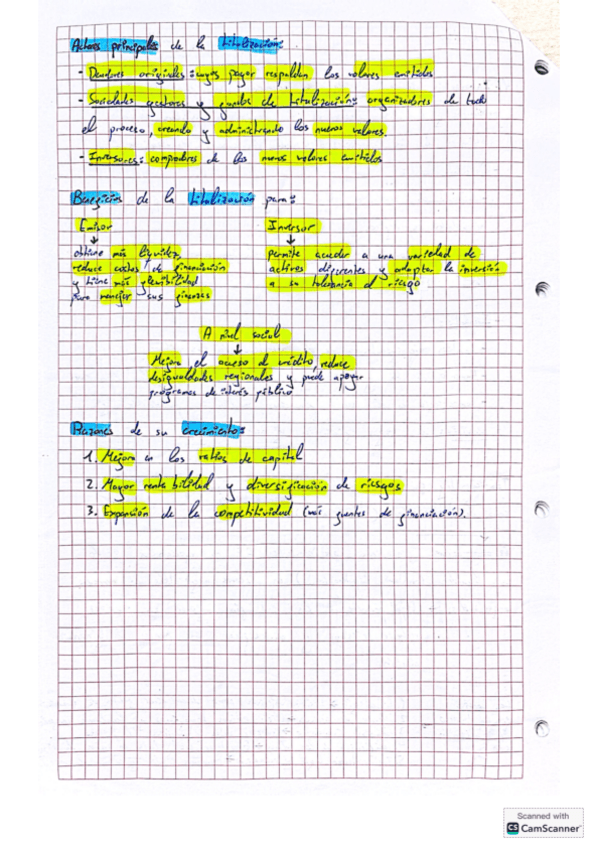 Actores principales de la titulización:
- Deudores originales: cuyos pagos respaldan los valores emitidos
- Sociedades gestoras y fondos de titulización: organizadores de todo
el proceso, creando y administrando los nuevos valores.
- Inversores: compradores de los nuevos valores emitidos
Beneficios de la titulización para:
Emisor
↓
obtiene más liquidez,
reduce costes de financiación
y tiene más flexibilidad
para manejar sus finanzas
Inversor
↓
permite acceder a una variedad de
activos diferentes y adaptar la inversión
a su tolerancia al riesgo
A nivel social
↓
Mejora el acceso al crédito, reduce
desigualdades regionales y puede apoyar
programas de interés público
Razones de su crecimiento:
1. Mejora en los ratios de capital
2. Mayor rentabilidad y diversificación de riesgos
3. Expansión de la competitividad (más fuentes de financiación).
Scanned with
CS CamScanner